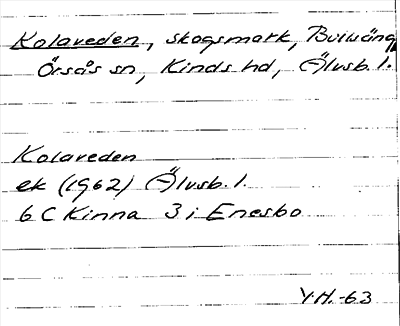 Kolaveden, skogsmark, 
Örsås sn, Kinds hd, Älvsb. l.
Kolaveden
ek (1962) Älvsb. l.
6 C Kinna 3 i Enesbo
Y.H. -63